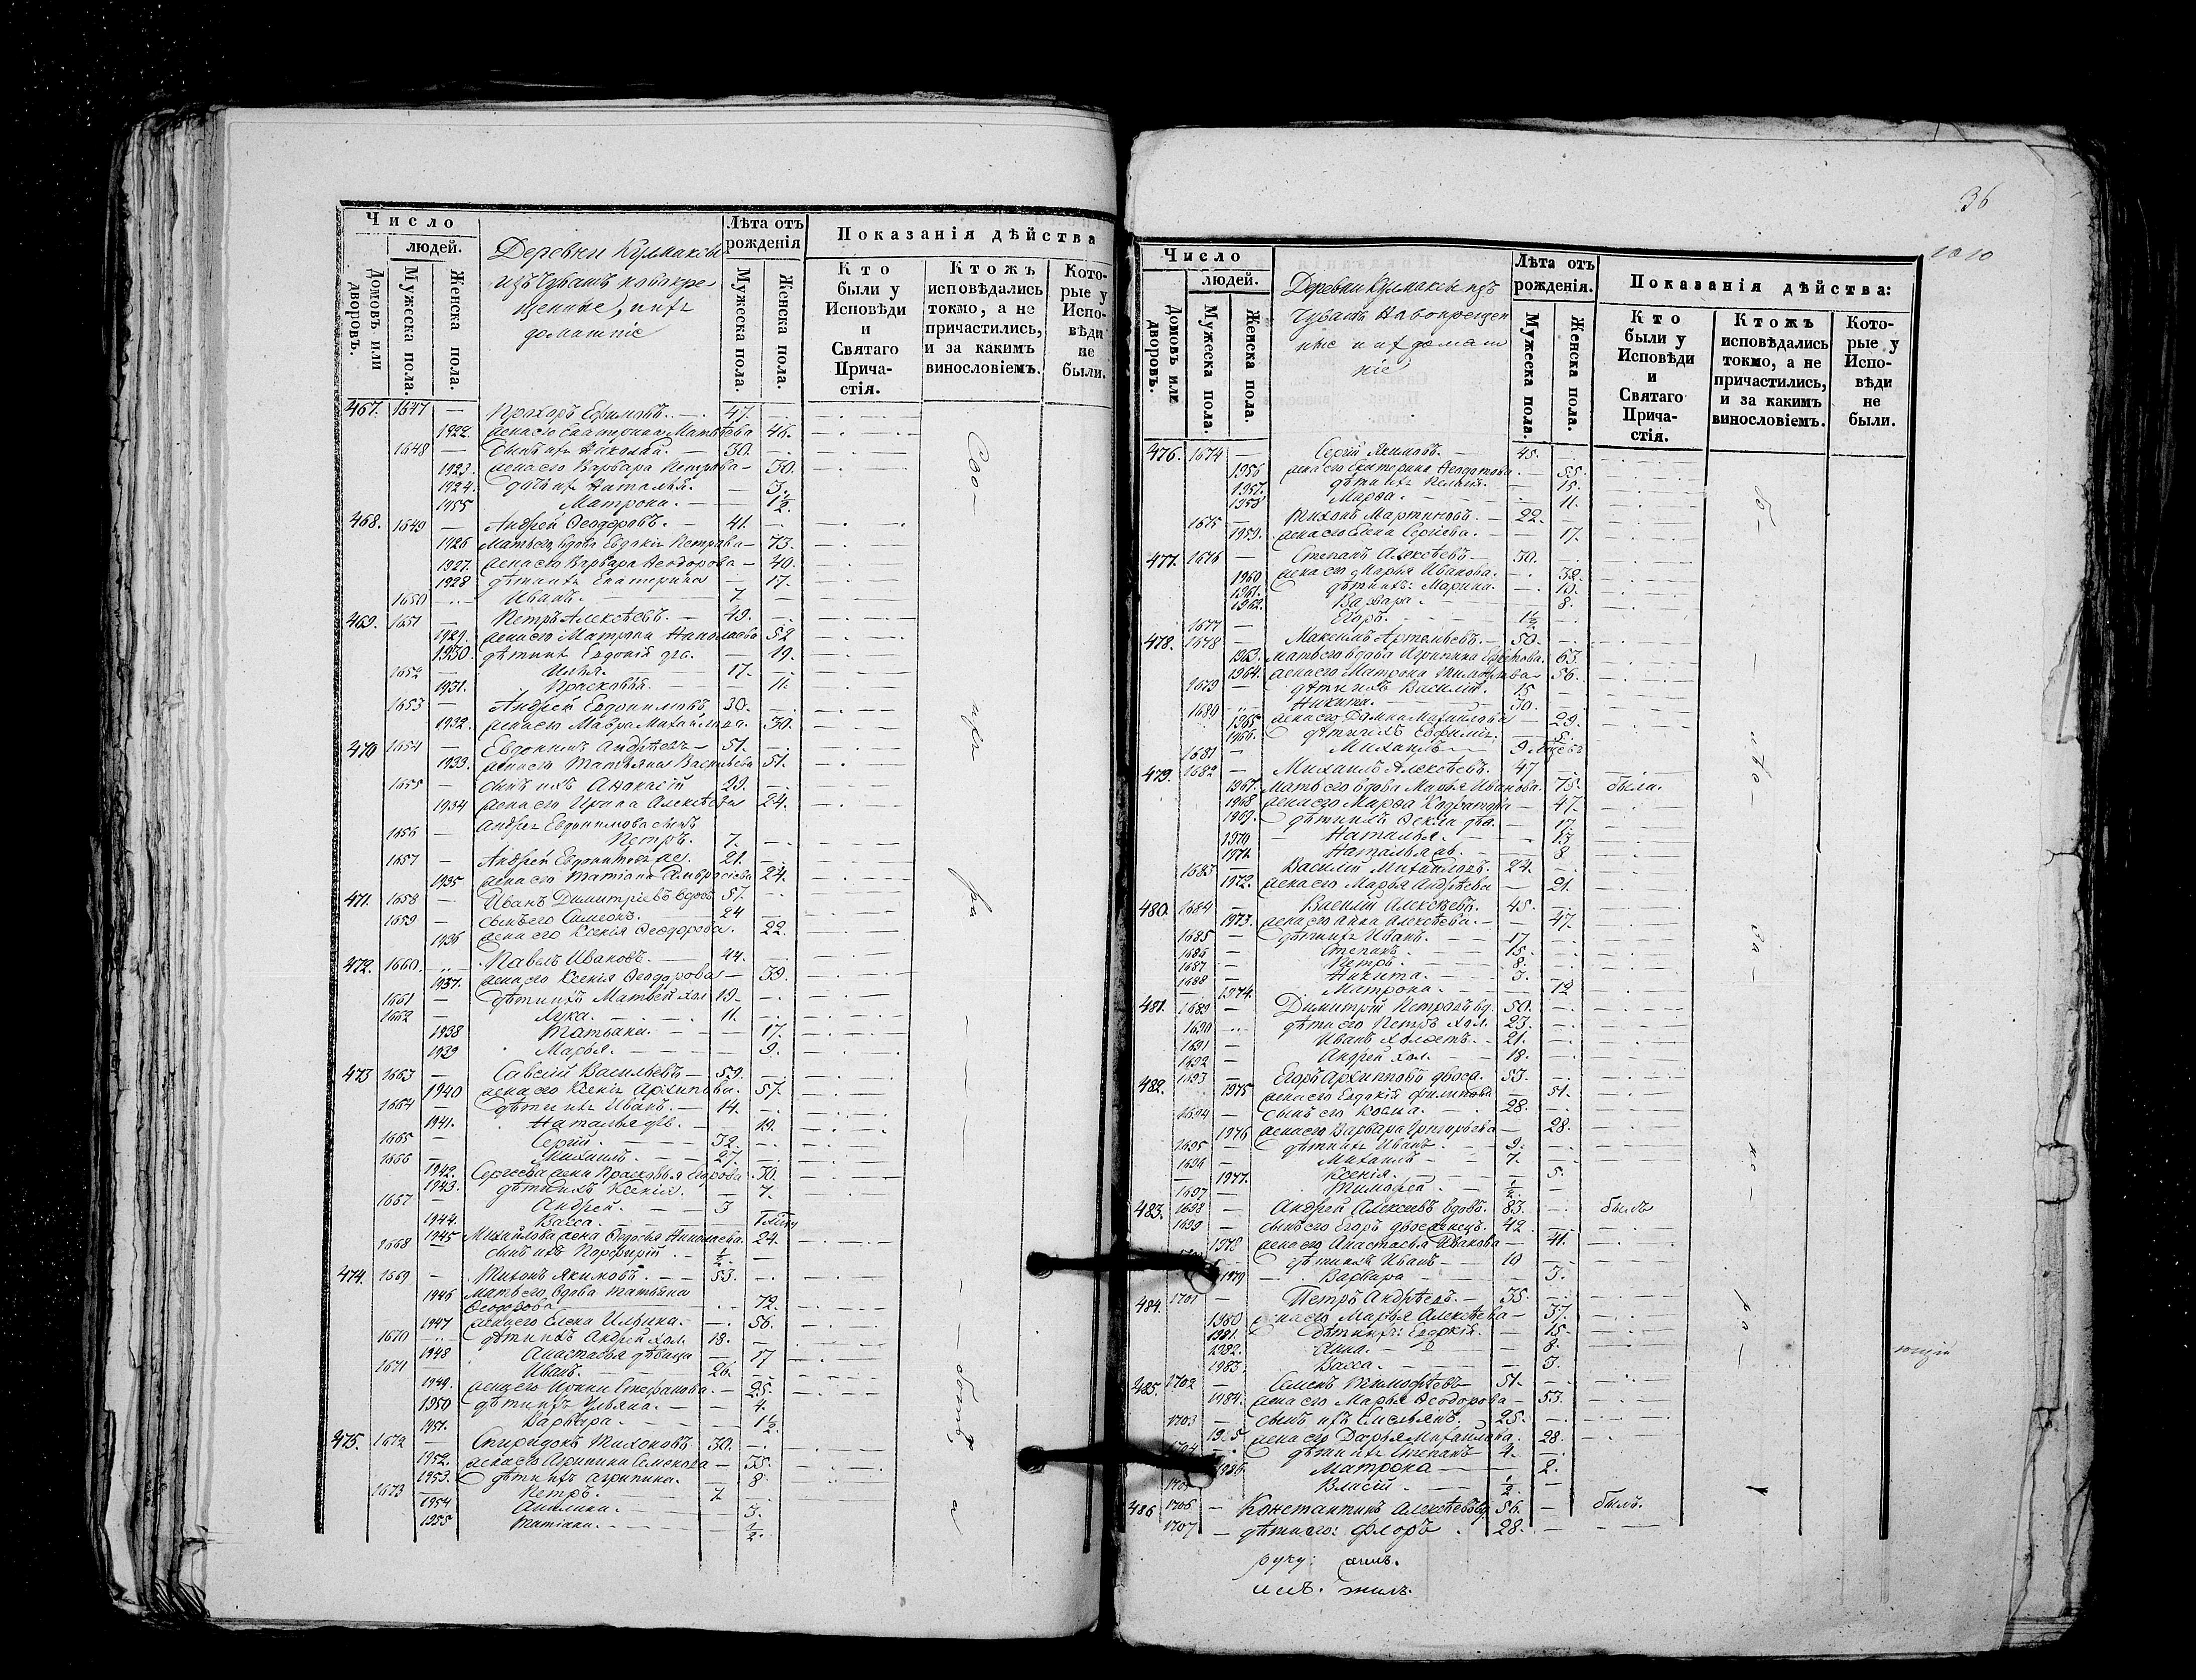 Число
людей.
Домовъ или дворовъ.
Мужеска пола.
Женска пола.
Деревни Кулмаксы
изъ Чувашъ новокре-
щенные, и ихъ
домашніе
Лѣта отъ рожденія
Мужеска пола.
Женска пола.
Показанія дѣйства
Кто были у Исповѣди и Святаго Причастія.
Ктожъ исповѣдались токмо, а не причастились, и за какимъ винословіемъ.
Которые у Исповѣди не были.
467. 1647 — Прохоръ Ефимовъ. — 47.
1922. жена его Екатерина Матвѣева 46.
1648 — сынъ ихъ Николай. — 30.
1923. жена его Варвара Петрова — 30.
1924. дочь ихъ Наталья. — 3.
1955 Матрона. — 1½.
468. 1649 — Андрей Ѳеодоровъ. — 41.
1926 Мать его, вдова Евдокія Петрова — 73.
1927. жена его Варвара Ѳеодорова — 40.
1928 дѣти ихъ Екатерина — 17.
1650 Иванъ. — 7
469. 1651 — Петръ Алексѣевъ. — 49.
1929. жена его Матрона Николаева 52
1930. дѣти ихъ Евдокія дѣ. — 19.
1652 — Илья. — 17.
1931. Прасковья. — 11.
1653 — Андрей Евдокимовъ 30.
1932. жена его Мавра Михайлова. 30.
470 1654 — Евдокимъ Андрѣевъ — 51.
1933. жена его Татьяна Васильева 51.
1655 — сынъ ихъ Аѳанасій 23.
1934 жена его Ирина Алексѣева 24.
Андрея Евдокимова сынъ
1656 — Петръ. 7.
1657 — Андрей Евдокимовъ 21.
1935 жена его Татіана 24.
471. 1658 — Иванъ Димитріевъ вдовъ 57.
1659 — сынъ его Симеонъ. 24
1936 жена его Ксенія Ѳеодорова. 22.
472. 1660. Павелъ Ивановъ. — 44.
1937. жена его Ксенія Ѳеодорова — 39.
1661 — дѣти ихъ Матвей хол 19.
1662 — Лука. — 11.
1938 Татьяна. — 17.
1939 Марья. — 9.
473 1663 — Савелій Васильевъ — 59.
1940 жена его Ксенія Архипова. 57.
1664 — дѣти ихъ Иванъ. — 14.
1941. Наталья дѣ. — 19.
1665 — Сергій. — 32.
1666 Михаилъ. — 27.
1942. Сергеева жена Прасковья Егорова 30.
1943. дѣти ихъ Ксенія. — 7.
1667 — Андрей. — 3
1944. Васса.
1945 Михайлова жена Ѳедосья Николаева. 24.
1668 — сынъ ихъ Порфирій — ½.
474. 1669 — Тихонъ Якимовъ. — 53.
1946 Мать его, вдова Татьяна
Ѳеодорова 72.
1947 жена его Елена Ильина. — 56.
1670 дѣти ихъ Андрей хол. 18.
1948 Анастасья дѣвица — 17
1671 Иванъ. — 26.
1949. жена его Ирина Степанова. — 25.
1950 дѣти ихъ Ульяна. — 4.
1951. Варвара. — 1½.
475. 1672 — Спиридонъ Тихоновъ 30.
1952. жена его Агрипина Семенова — 35.
1953. дѣти ихъ Агрипина. — 8.
1673 — Петръ. — 7
1954 Акилина. — 3.
1955 Татіана. — ½.
36
Число
людей.
Домовъ или дворовъ.
Мужеска пола.
Женска пола.
Деревни Кулмаксы изъ
Чувашъ Новокрещен
ные и ихъ домаш
ніе
Лѣта отъ рожденія.
Мужеска пола.
Женска пола.
Показанія дѣйства:
Кто были у Исповѣди и Святаго Причастія.
Ктожъ исповѣдались токмо, а не причастились, и за какимъ винословіемъ.
Которые у Исповѣди не были.
476. 1674 — Сергій Якимовъ. — 45.
1956 жена его Екатерина Ѳеодотова. — 55.
1957. дѣти ихъ — 15.
1958 Марѳа. — 11.
1675 — Тихонъ Мартиновъ. — 22.
1959. жена его Елена Сергіева. — 17.
477. 1676 — Степанъ Алексѣевъ — 30.
1960 жена его Марья Иванова. — 32.
1961. дѣти ихъ: Марина.
1962. Варвара. — 8.
1677 — Егоръ. — 1½.
478. 1678 — Максимъ Артемьевъ. — 50.
1963. мать его вдова Агрипина 63.
1964. жена его Матрона Тимофѣева — 56.
1679 — дѣти ихъ Василій. 15
1680 Никита. — 30.
1965. жена его Домна Михайлова — 29.
1966. дѣти ихъ Евфимія. — 5.
1681 — Михаилъ — 9 мѣсяцъ
479. 1682 — Михаилъ Алексѣевъ. 47
1967. мать его вдова Марья Иванова. 75. была.
1968 жена его Марѳа — 47.
1969. дѣти ихъ Ѳекла дѣв. — 17
1970 Наталья. — 13
1971. Наталья — 8
1683 — Василій Михайловъ. 24.
1972. жена его Марья Андрѣева — 21.
480. 1684 — Василій Алексѣевъ. 45.
1973. жена его Анна Алексѣева. — 47.
1685 — дѣти ихъ Иванъ. — 17
1686 — Степанъ. — 15.
1687 — Петръ. — 8.
1688 — Никита. — 3.
1974. Матрона. — 12
481. 1689 — Димитрій Петровъ вд. 50.
1690 дѣти его Петръ хол. 23.
1691 — Иванъ холостъ. — 21.
1692 — Андрей хол. — 18.
482. 1693 — Егоръ Архиповъ двоеж. 53.
1975 жена его Евдокія Филипова 51.
1694 — сынъ его Козма. — 28.
1976 жена его Варвара Григорьева — 28.
1695 — дѣти ихъ Иванъ. — 9.
1696 — Михаилъ — 7.
1977. Ксенія. — 5.
1697 — Тимофей. — ½.
483. 1698 — Андрей Алексеевъ вдовъ. 83. былъ
1699 — сынъ его Егоръ двоеженецъ. 42
1978 жена его Анастасья Иванова — 41.
дѣти ихъ Иванъ — 10
1979 Варвара — 3.
484. 1701 — Петръ Андрѣевъ. — 35.
1980 жена его Марья Алексѣева — 37.
1981. дѣти ихъ: Евдокія. — 15.
1982. Анна. — 8.
1983. Васса. — 3.
485. 1702 — Семенъ Тимофѣевъ — 51.
1984. жена его Марья Ѳеодорова — 53.
1703 — сынъ ихъ Емельянъ. 25.
жена его Дарья Михайлова. 28.
1704 дѣти ихъ Степанъ 4.
1986 Матрона — 2.
Власій. — ½.
486 1706 — Константинъ Алексѣевъ вд 56. былъ.
1707 — дѣти его: Флоръ. 28.